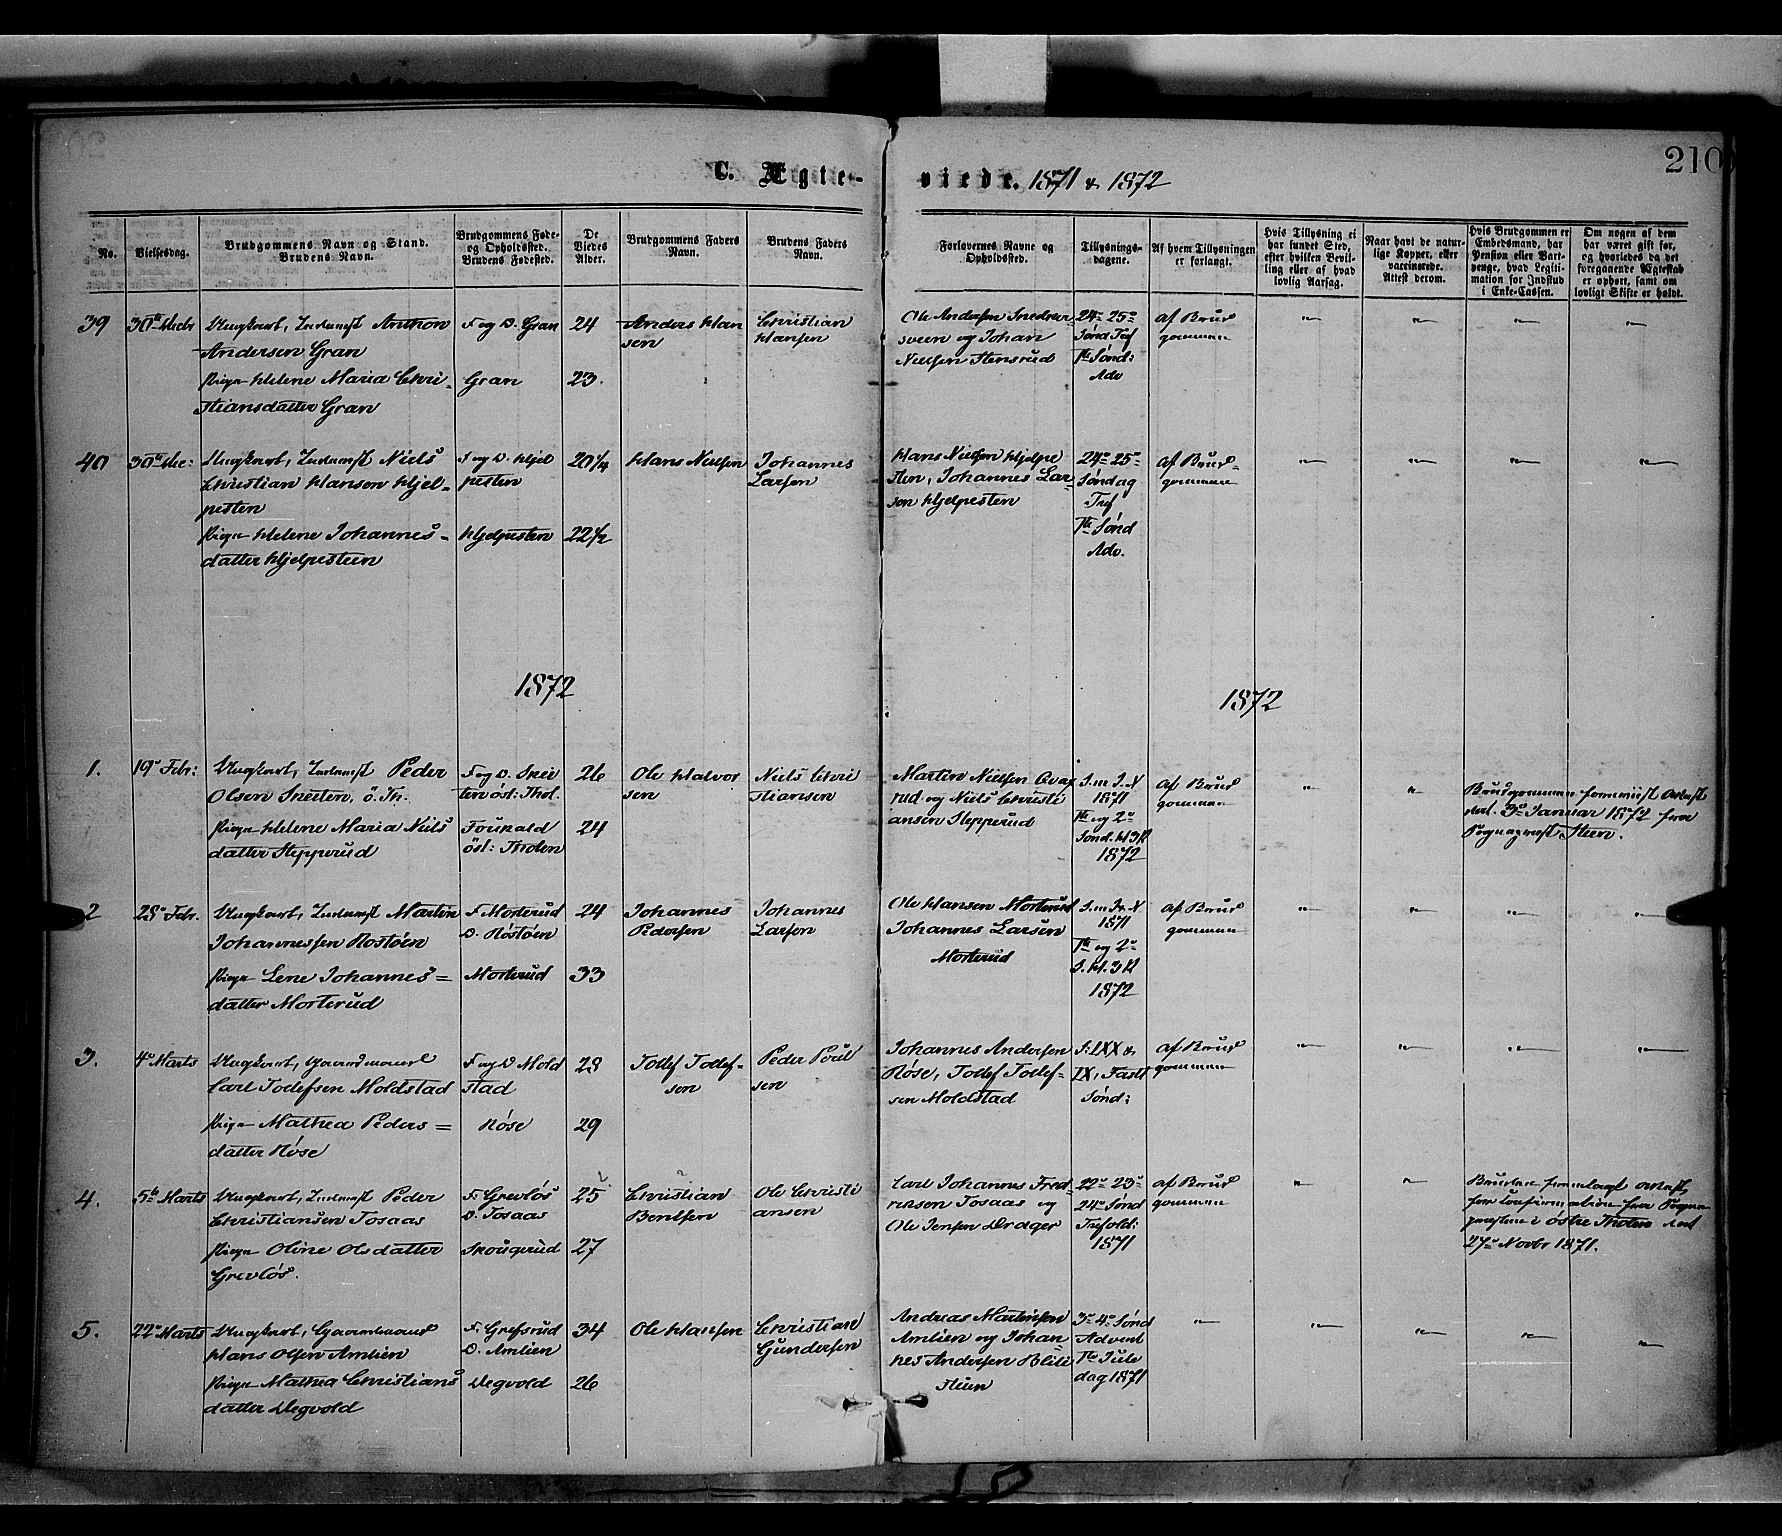 C. Ægte-
viede. 1871 & 1872
210
No.
Vielsesdag.
Brudgommens Navn og Stand.
Brudens Navn.
Brudgommens Føde-
og Opholdssted.
Brudens Fødested.
De
Viedes
Alder.
Brudgommens Faders
Navn.
Brudens Faders
Navn.
Forlovernes Navne og
Opholdssted.
Tillysnings-
dagene.
Af hvem Tillysningen
er forlangt.
Hvis Tillysning ei
har fundet Sted,
efter hvilken Bevil-
ling eller af hvad
lovlig Aarsag.
Naar havt de natur-
lige Kopper, eller
vaccinerede.
Attest derom.
Hvis Brudgommen er
Embedsmand, har
Pension eller Vart-
penge, hvad Legiti-
mation for Indskud
i Enke-Cassen.
Om nogen af dem
har været gift før,
og hvorledes da det
foregaaende Ægteskab
er ophørt, samt om
lovligt Skifte er holdt.
39
30te Decbr
Ungkarl, Inderst Anthon
Andersen Gran
Pige Helene Maria Chri-
stiansdatter Gran
F og O. Gran
Gran
24
23.
Anders Han
sen
Christian
Hansen
Ole Andersen
sveen og Johan
Nielsen Stensrud
24de 25de
Sønd Tref
1ste Sønd:
Adv
af Brud
gommen
40
30te Dec:
Ungkarl, Inderst Niels
Christian Hansen Hjel-
pesten
Pige Helene Johannes-
datter Hjelpesteen
F og O. Hjel
pesten
Hjelpesten
20 1/4
22 1/2
Hans Nielsen
Johannes
Larsen
Hans Nielsen Hjelpe
sten, Johannes Lar-
sen Hjelpesten
24de 25de
Søndag
Tref
1ste Sønd
Adv.
af Brud-
gommen
1872
1872
1.
19de Febr:
Ungkarl, Inderst Peder
Olsen Sneiten, ö. Th.
Pige Helene Maria Niels
datter Stepperud
F og O. Snei
ten öst: Thot.
öst: Thoten
26
24
Ole Halvor
sen
Niels Chri
stiansen
Martin Nielsen
rud og Niels Christi
ansen Stepperud
1871
1ste og 2den
Sønd. H3K
1872
af Brud
gommen
Brudgommen fremviist Attest
dat. 3de Januar 1872 fra
Sognepræst Steen.
2
28de Febr.
Ungkarl, Inderst Martin
Johannessen Rostöen
Pige Lene Johannes=
datter Morterud
F. Morterud
O. Röstöen
Morterud
24
33
Johannes
Pedersen
Johannes
Larsen
Ole Hansen Morterud
Johannes Larsen
Morterud
1871
1ste og 2den
S. H. 3 K
1872
af Brud
gommen
3.
4de Marts
Ungkarl, Gaardmand
Carl Tollefsen Moldstad
Pige Mathea Peders=
datter Röse
F og O Mold
stad
Röse
28
29
Tollef Tollef-
sen
Peder Poul
sen
Johannes Andersen
Röse, Tollef Tollef-
sen Moldstad
S: LXX &
IX, Fast
Sønd:
af Brud
gommen
4.
5te Marts
Ungkarl, Inderst Peder
Christiansen Tosaas
Pige Oline Olsdatter
Grevlös.
F. Grevlös
O. Tosaas
Skougerud
25
27
Christian
Bentsen
Ole Christi
ansen
Carl Johannes Fred-
riksen Tosaas og
Ole Jensen Drager
22de 23de
24de Sønd
Trefold:
1871
af Brud
gommen
Bruden fremlagt Attest
for Confirmation fra Sogne
præsten i östre Thoten dat
27de Novbr 1871.
5.
22de Marts
Ungkarl, Gaardmand
Hans Olsen Amlien
Pige Mathea Christians
datter Degvold
F. Grefsrud
O. Amlien
Degvold
34
26
Ole Hansen
Christian
Gundersen
Andreas Martinsen
Amlien og Johan
nes Andersen Blili
Steen
3de 4de Sønd
Advent
1ste Jule
dag 1871